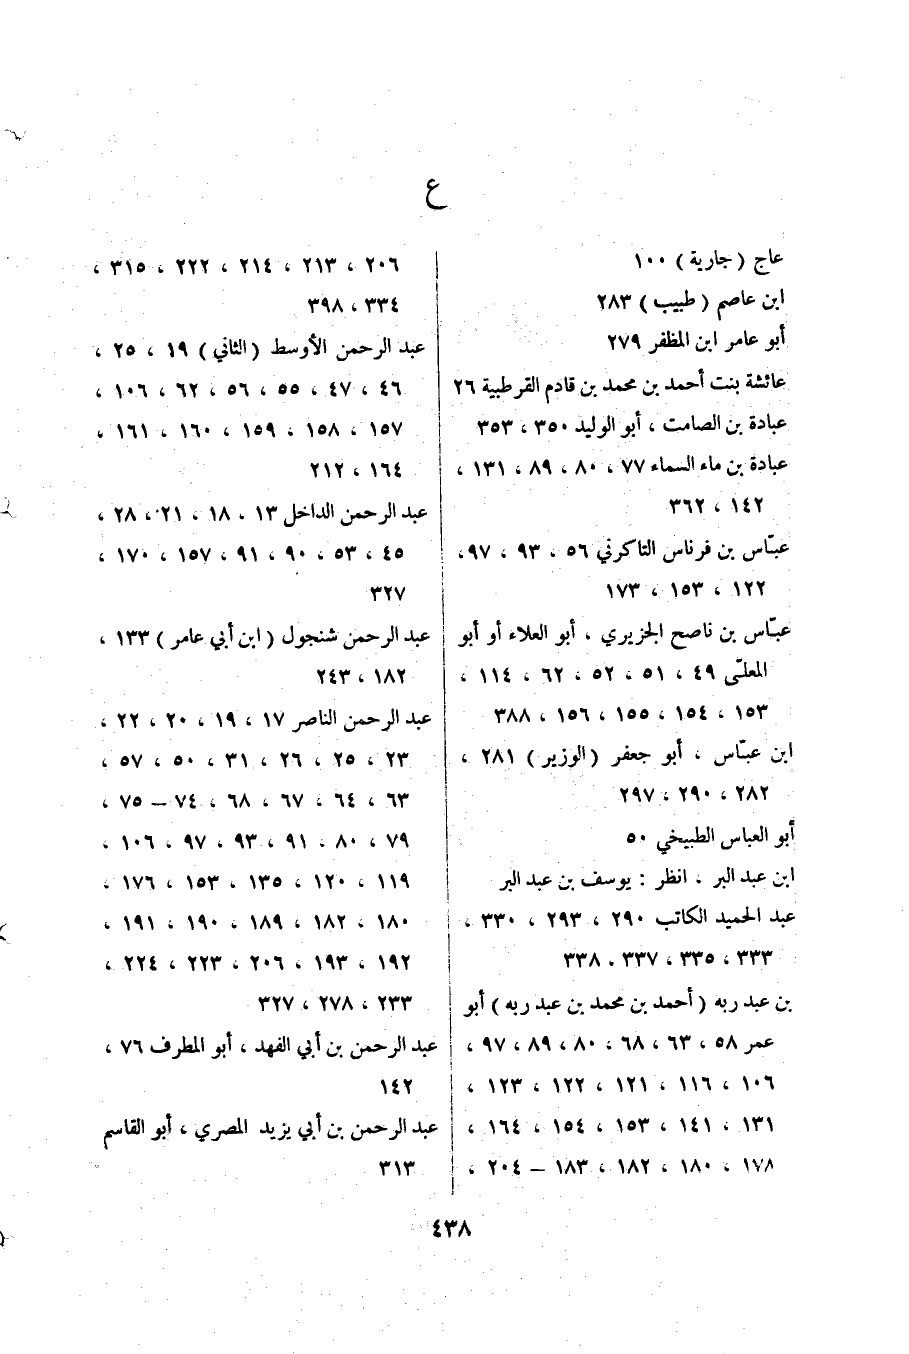 ع
عاج ( جارية ) ١٠٠
ابن عاصم ( طبيب ) ٢٨٣
أبو عامر ابن المظفر ٢٧٩
عائشة بنت أحمد بن محمد بن قادم القرطبية ٢٦
عبادة بن الصامت ، أبو الوليد ٣٥٠ ، ٣٥٣
عبادة بن ماء السماء ٧٧ ، ٨٠ ، ٨٩ ، ١٣١ ،
١٤٢ ، ٣٦٢
عبّاس بن فرناس التاكرني ٥٦ ، ٩٣ ، ٩٧ ،
١٢٢ ، ١٥٣ ، ١٧٣
عبّاس بن ناصح الجزيري ، أبو العلاء أو أبو
المعلّى ٤٩ ، ٥١ ، ٥٢ ، ٦٢ ، ١١٤ ،
١٥٣ ، ١٥٤ ، ١٥٥ ، ١٥٦ ، ٣٨٨
ابن عبّاس ، أبو جعفر ( الوزير ) ٢٨١ ،
٢٨٢ ، ٢٩٠ ، ٢٩٧
أبو العباس الطبيخي ٥٠
ابن عبد البر ، انظر : يوسف بن عبد البر
عبد الحميد الكاتب ٢٩٠ ، ٢٩٣ ، ٣٣٠ ،
٣٣٣ ، ٣٣٥ ، ٣٣٧ ، ٣٣٨
بن عبد ربه ( أحمد بن محمد بن عبد ربه ) أبو
عمر ٥٨ ، ٦٣ ، ٦٨ ، ٨٠ ، ٨٩ ، ٩٧ ،
١٠٦ ، ١١٦ ، ١٢١ ، ١٢٢ ، ١٢٣ ،
١٣١ ، ١٤١ ، ١٥٣ ، ١٥٤ ، ١٦٤ ،
١٧٨ ، ١٨٠ ، ١٨٢ ، ١٨٣ – ٢٠٤ ،
٢٠٦ ، ٢١٣ ، ٢١٤ ، ٢٢٢ ، ٣١٥ ،
٣٣٤ ، ٣٩٨
عبد الرحمن الأوسط ( الثاني ) ١٩ ، ٢٥ ،
٤٦ ، ٤٧ ، ٥٥ ، ٥٦ ، ٦٢ ، ١٠٦ ،
١٥٧ ، ١٥٨ ، ١٥٩ ، ١٦٠ ، ١٦١ ،
١٦٤ ، ٢١٢
عبد الرحمن الداخل ١٣ ، ١٨ ، ٢١ ، ٢٨ ،
٤٥ ، ٥٣ ، ٩٠ ، ٩١ ، ١٥٧ ، ١٧٠ ،
٣٢٧
عبد الرحمن شنجول ( ابن أبي عامر ) ١٣٣ ،
١٨٢ ، ٢٤٣
عبد الرحمن الناصر ١٧ ، ١٩ ، ٢٠ ، ٢٢ ،
٢٣ ، ٢٥ ، ٢٦ ، ٣١ ، ٥٠ ، ٥٧ ،
٦٣ ، ٦٤ ، ٦٧ ، ٦٨ ، ٧٤ – ٧٥ ،
٧٩ ، ٨٠ ، ٩١ ، ٩٣ ، ٩٧ ، ١٠٦ ،
١١٩ ، ١٢٠ ، ١٣٥ ، ١٥٣ ، ١٧٦ ،
١٨٠ ، ١٨٢ ، ١٨٩ ، ١٩٠ ، ١٩١ ،
١٩٢ ، ١٩٣ ، ٢٠٦ ، ٢٢٣ ، ٢٢٤ ،
٢٣٣ ، ٢٧٨ ، ٣٢٧
عبد الرحمن بن أبي الفهد ، أبو المطرف ٧٦ ،
١٤٢
عبد الرحمن بن أبي يزيد المصري ، أبو القاسم
٣١٣
٤٣٨